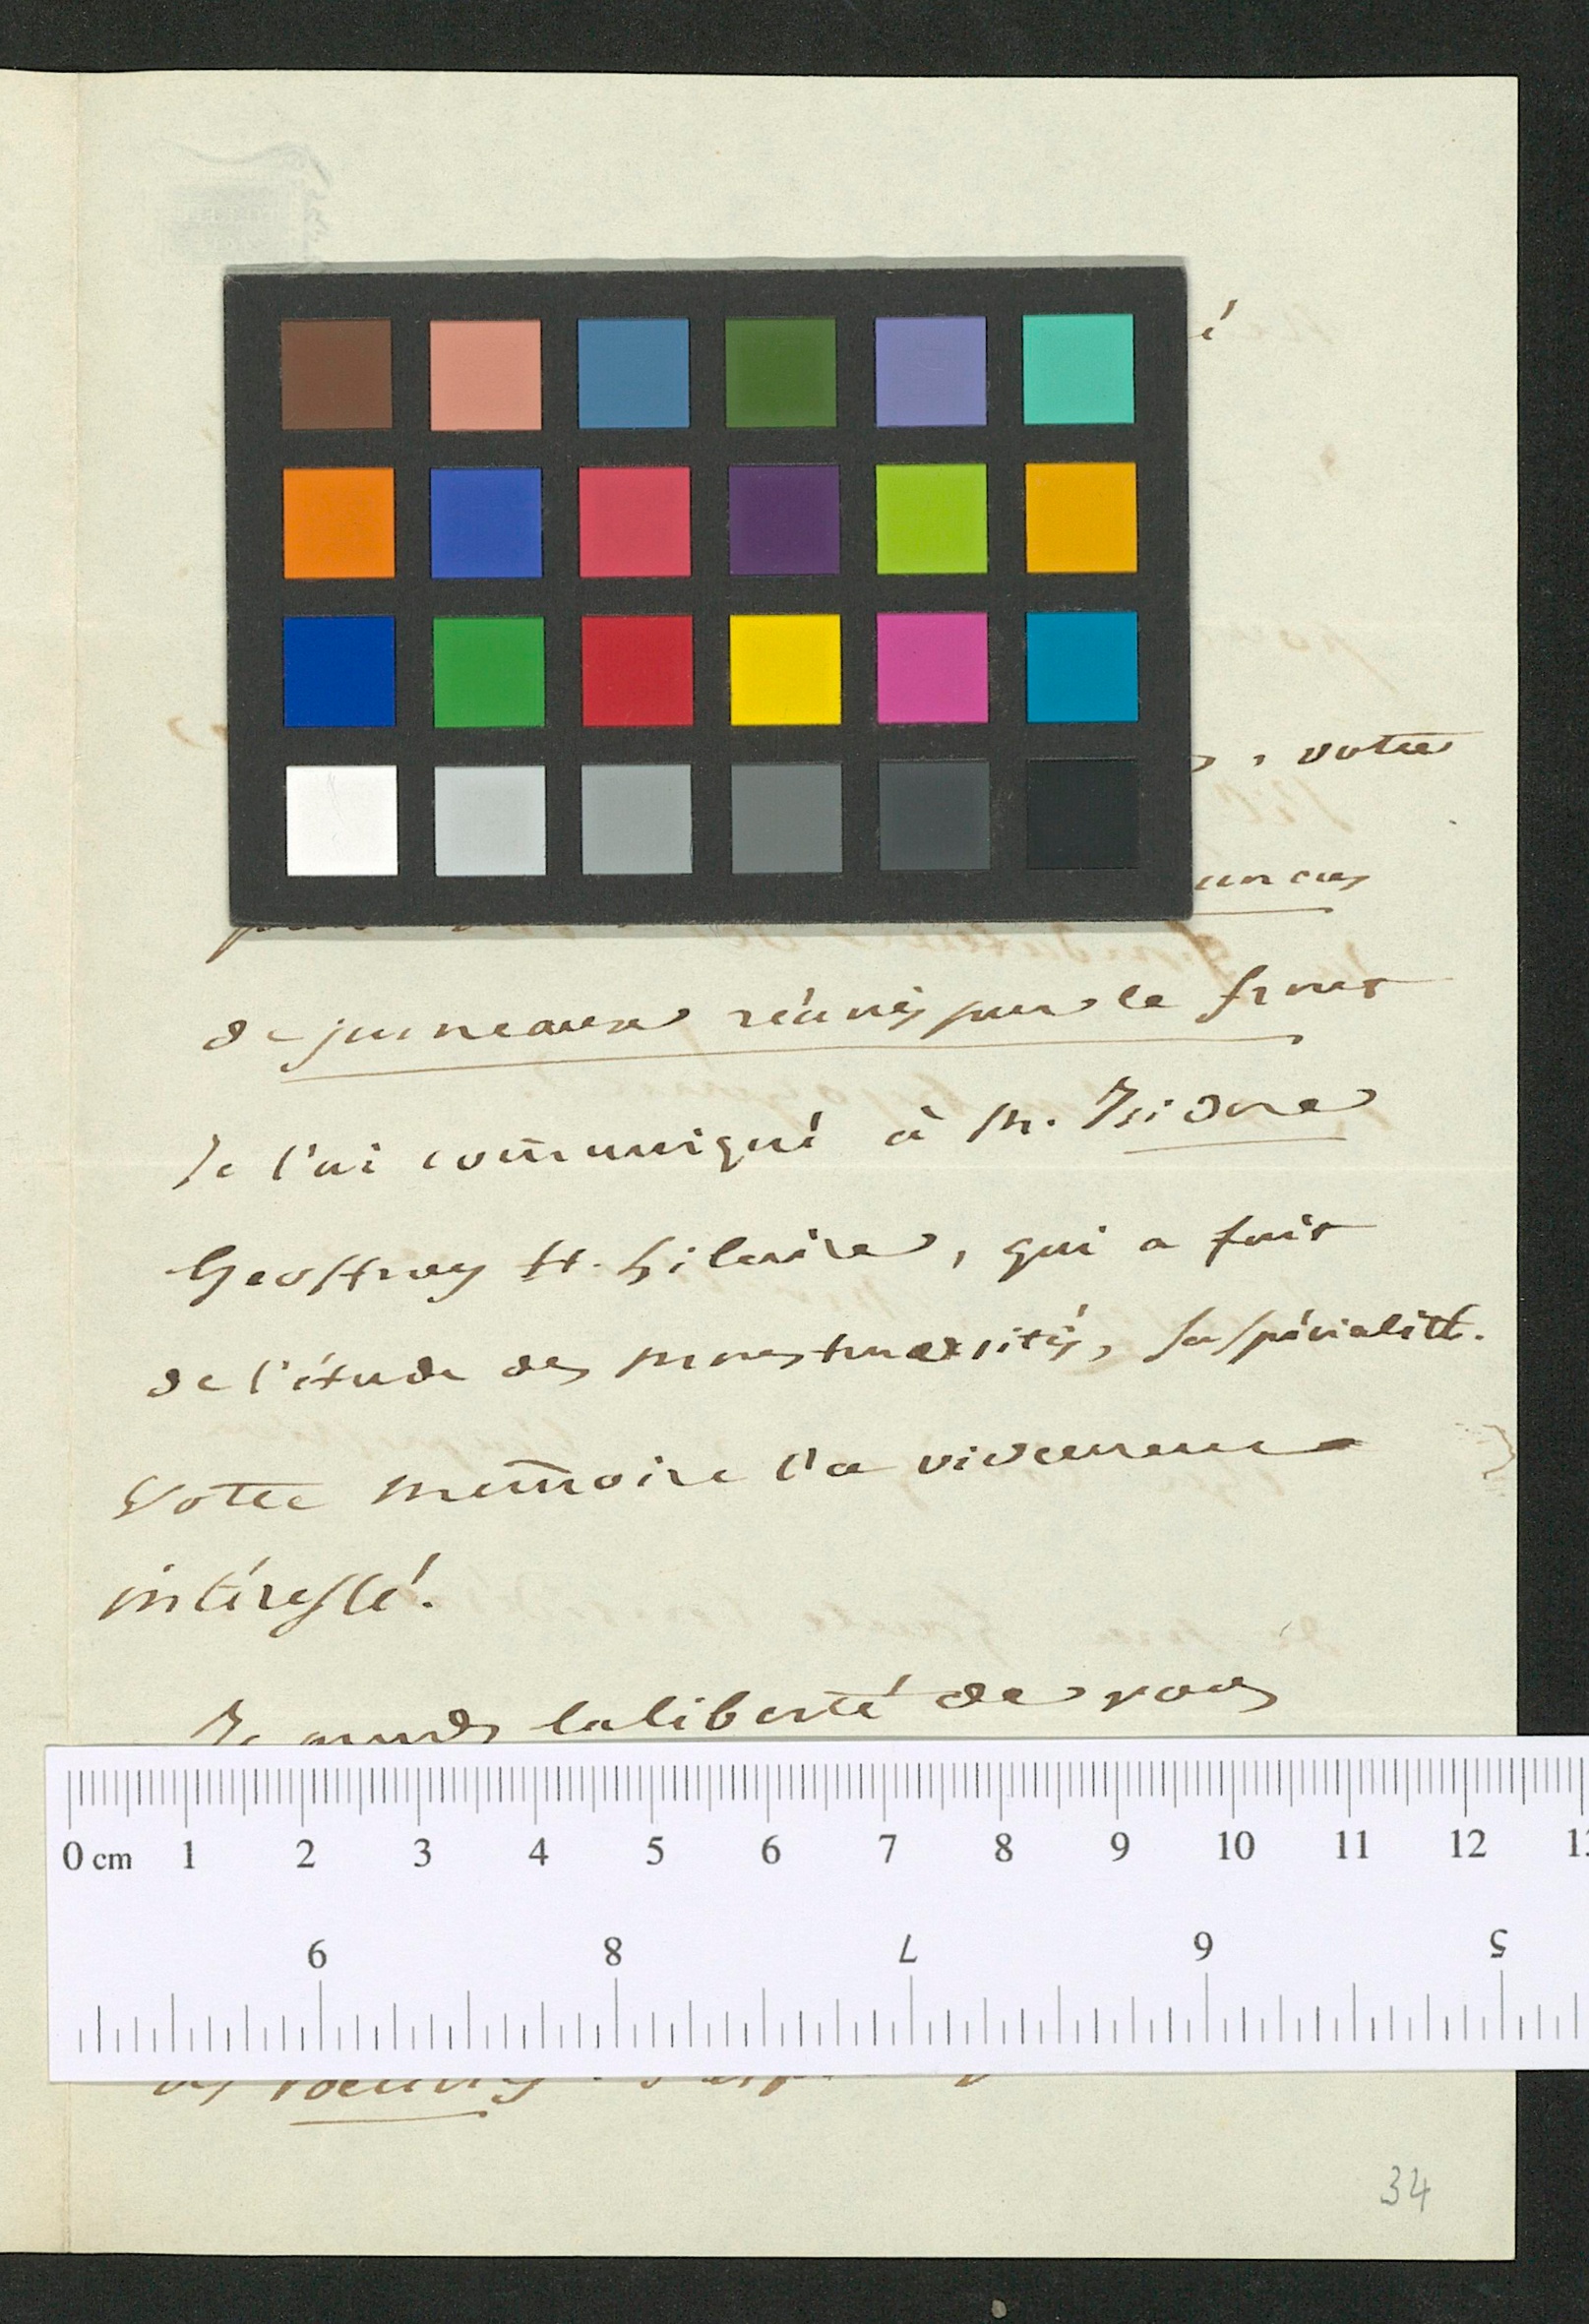 , votre
un cas
de jumeaux réunis par le front
Je l'ai com̄uniqué à M. Isidore
Geoffroy St. hilaire, qui a fait
de l'étude des monstruosités, sa spécialité.
Votre mem̄oire l'a vivement
intéressé.
Je prends la liberté de vous
0 cm 1 2 3 4 5 6 7 8 9 10 11 12
9 8 7 6 5
34